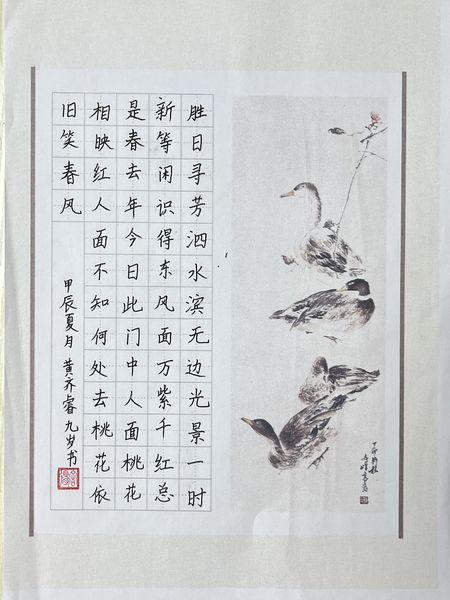 胜日寻芳泗水滨无边光景一时
新等闲识得东风面万紫千红总
是春去年今日此门中人面桃花
相映红人面不知何处去桃花依
旧笑春风
甲辰夏月 黄睿九岁书